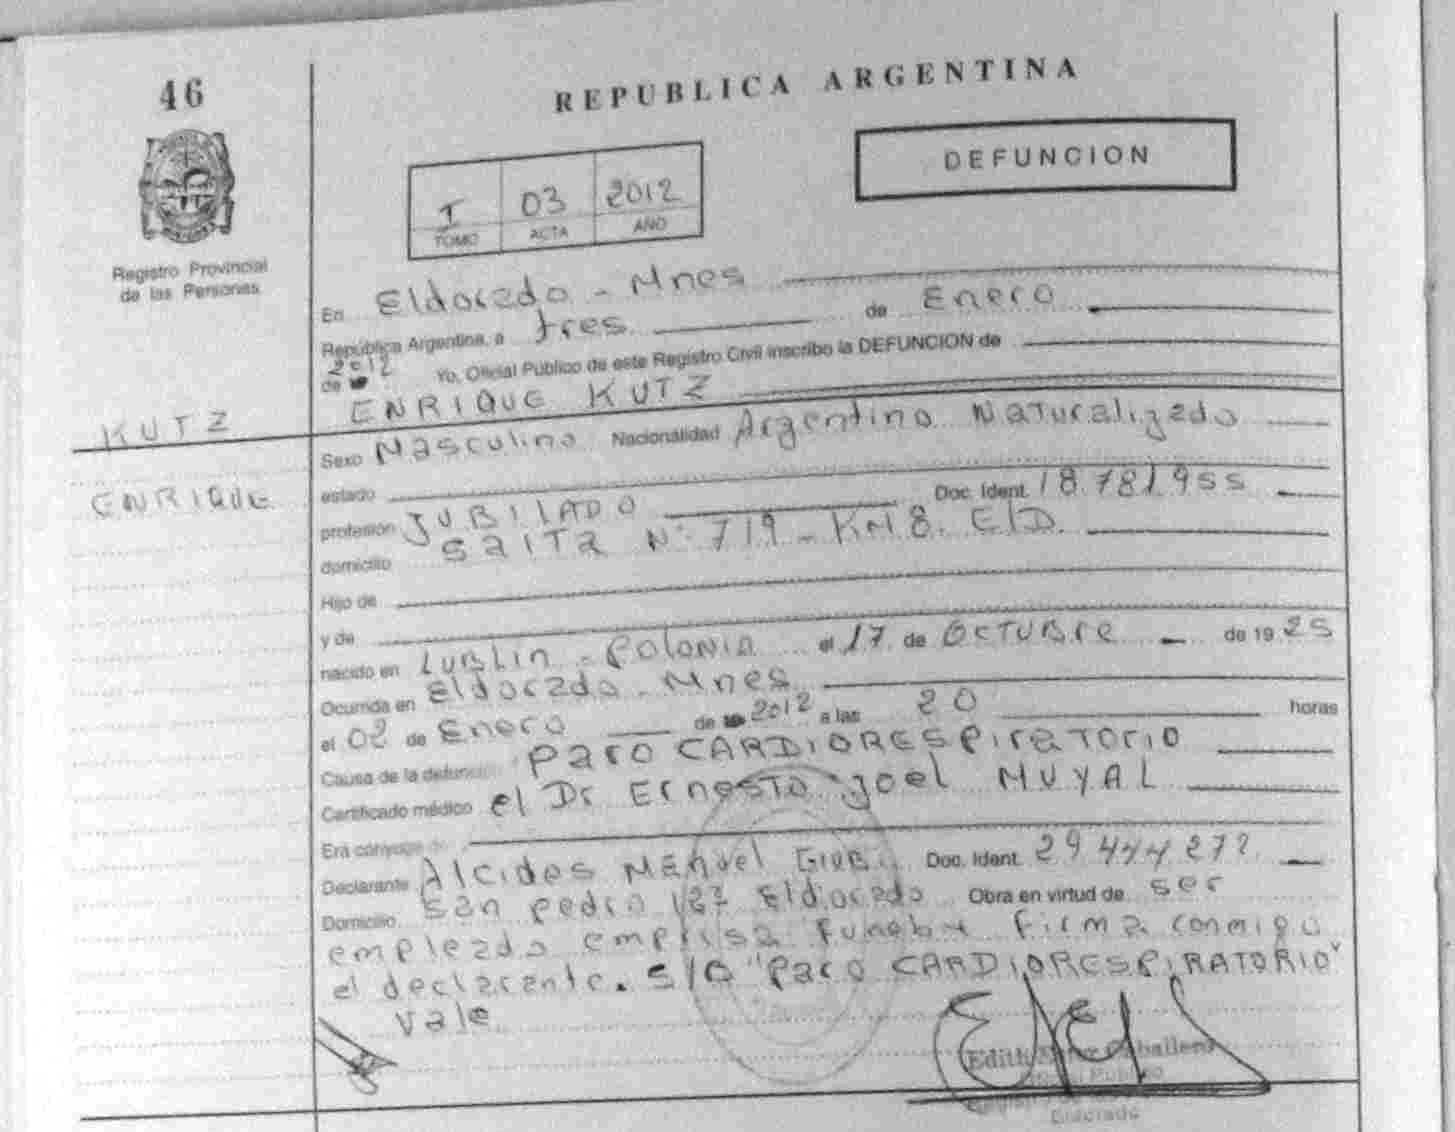 46
REPUBLICA ARGENTINA
DEFUNCION
I 03 2012
TOMO ACTA AÑO
Registro Provincial
de las Personas
En Eldorado - Mnes
República Argentina, a tres de Enero
de 2012 Yo, Oficial Público de este Registro Civil inscribo la DEFUNCION de
KUTZ ENRIQUE KUTZ
Sexo Masculino Nacionalidad Argentino Naturalizado
ENRIQUE estado Doc. Ident. 18.781.955
profesión JUBILADO
domicilio Salta Nº 719 - KM 8. ElD.
Hijo de
y de
nacido en Lublin - Polonia el 17 de Octubre de 19 25
Ocurrida en Eldorado - Mnes
el 02 de Enero de 2012 a las 20 horas
Causa de la defunción Paro CARDIORESPIRATORIO
Certificado médico el Dr Ernesto Joel MUYAL
Era cónyuge de
Declarante Alcides Manuel Doc. Ident. 29 444 272
Domicilio San pedro Eldorado Obra en virtud de ser
empleado empresa firma conmigo
el declarante. S/B "Paro CARDIORESPIRATORIO"
Vale
Edith Caballero
Oficial Público
Eldorado